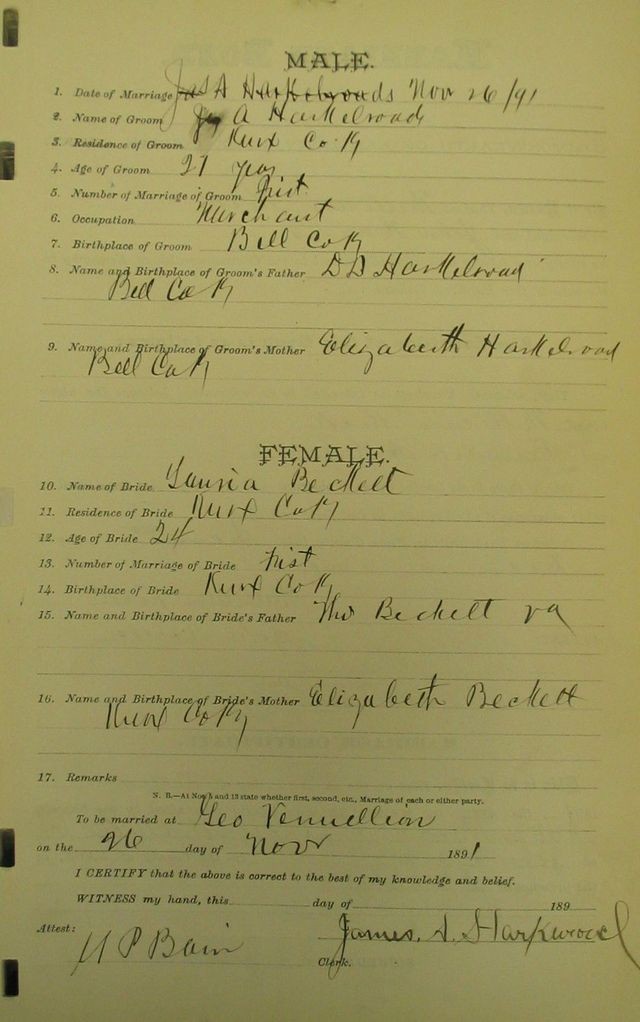 MALE.
1. Date of Marriage Jas A Harkelroads Nov 26/91
2. Name of Groom Jas A Harkelroad
3. Residence of Groom Knox Co Ky
4. Age of Groom 27 years
5. Number of Marriage of Groom First
6. Occupation Merchant
7. Birthplace of Groom Bell Co Ky
8. Name and Birthplace of Groom's Father D D Harkelroad
Bell Co Ky
9. Name and Birthplace of Groom's Mother Elizabeth Harkelroad
Bell Co Ky
FEMALE.
10. Name of Bride Beckett
11. Residence of Bride Knox Co Ky
12. Age of Bride 24
13. Number of Marriage of Bride First
14. Birthplace of Bride Knox Co Ky
15. Name and Birthplace of Bride's Father Thos Beckett Va
16. Name and Birthplace of Bride's Mother Elizabeth Beckett
Knox Co Ky
17. Remarks
N. B.—At Nos. 5 and 13 state whether first, second, etc., Marriage of each or either party.
To be married at Geo Vermillion
on the 26 day of Novr 1891
I CERTIFY that the above is correct to the best of my knowledge and belief.
WITNESS my hand, this day of 189
Attest: James. A. Harkelroad
H P Bain Clerk.